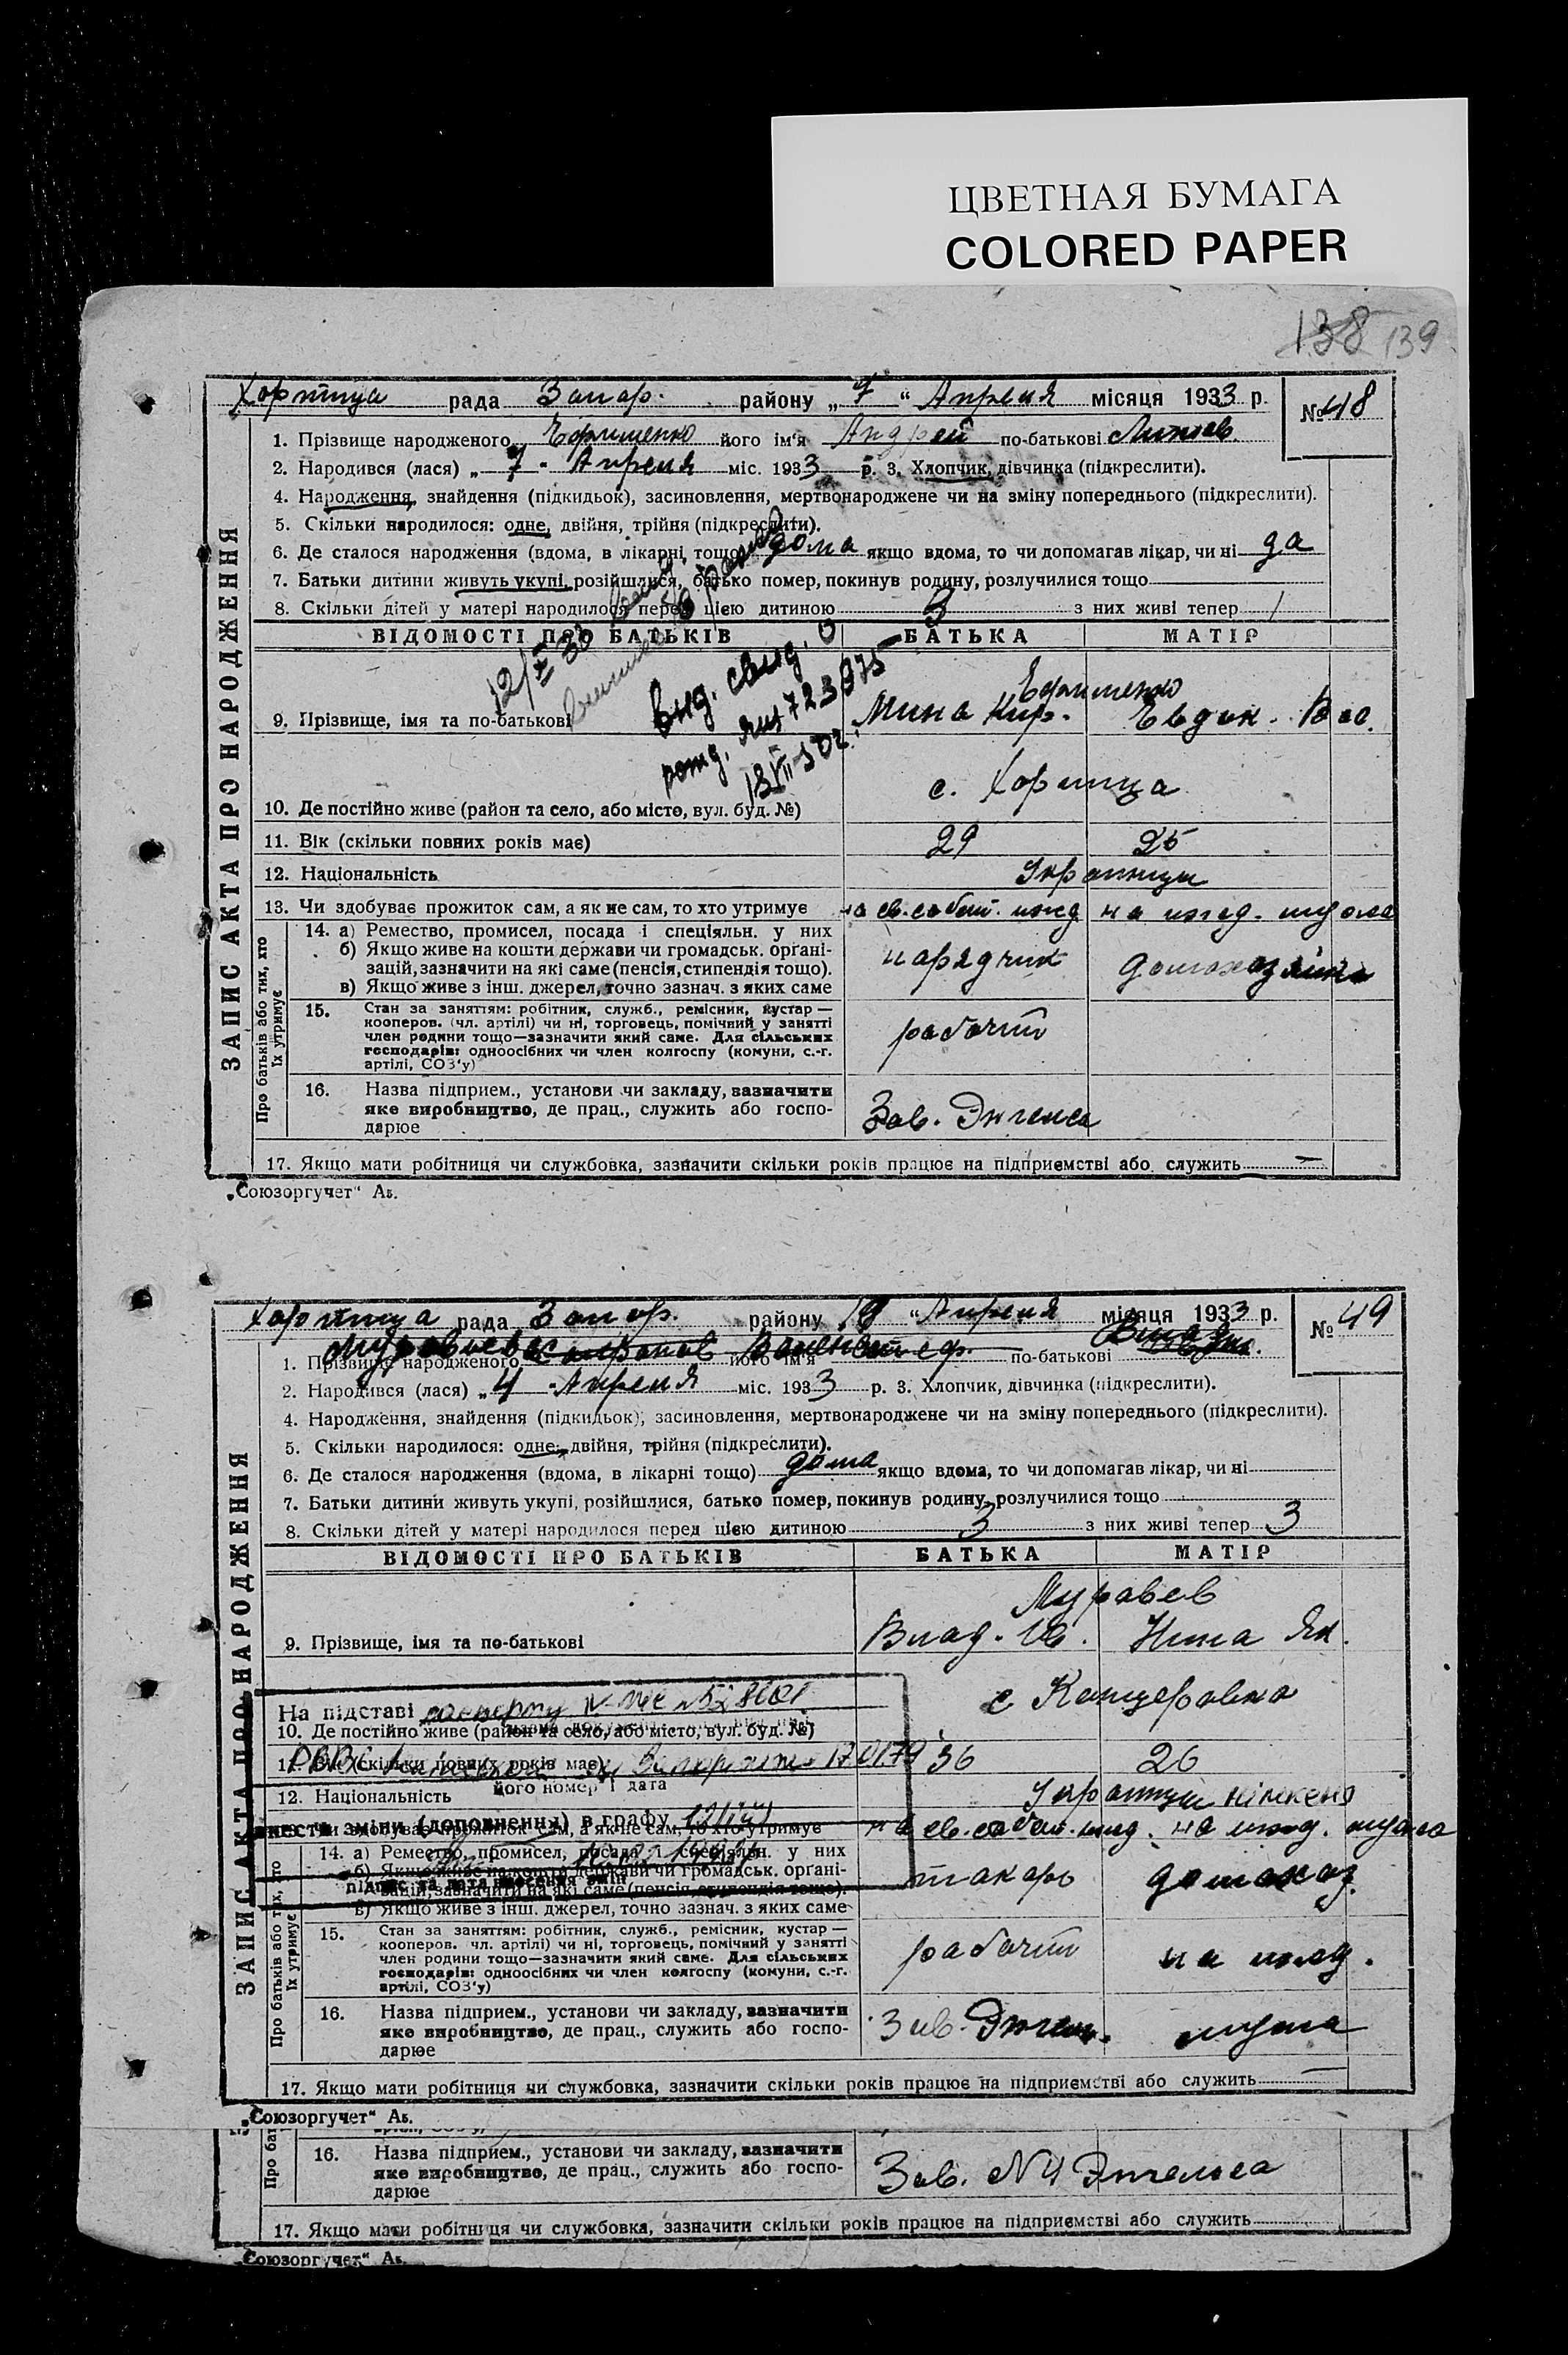 ЦВЕТНАЯ БУМАГА
COLORED PAPER
138 139
Хортица рада Запор. району „7“ Апреля місяця 1933 р. № 48
ЗАПИС АКТА ПРО НАРОДЖЕННЯ
1. Прізвище народженого Ефименко його ім'я Андрей по-батькові
2. Народився (лася) „7- Апреля міс. 1933 р. 3. Хлопчик, дівчинка (підкреслити).
4. Народження, знайдення (підкидьок), засиновлення, мертвонароджене чи на зміну попереднього (підкреслити).
5. Скільки народилося: одне, двійня, трійня (підкреслити).
6. Де сталося народження (вдома, в лікарні, тощо) дома якщо вдома, то чи допомагав лікар, чи ні да
7. Батьки дитини живуть укупі, розійшлися, батько помер, покинув родину, розлучилися тощо
8. Скільки дітей у матері народилося перед цією дитиною 3 з них живі тепер 1
ВІДОМОСТІ ПРО БАТЬКІВ БАТЬКА МАТІР
12/X 33
вид. свид. о
рожд. 723975
18 VII 50г.
Ефименко
9. Прізвище, імя та по-батькові Мина Кир. Евдок. Вас.
с. Хортица
10. Де постійно живе (район та село, або місто, вул. буд. №)
11. Вік (скільки повних років має) 29 25
12. Національність Украинцы
13. Чи здобуває прожиток сам, а як не сам, то хто утримує на св. собст. ижд на ижд. мужа
Про батьків або тих, хто їх утримує
14. а) Ремество, промисел, посада і спеціяльн. у них
б) Якщо живе на кошти держави чи громадськ. органі-
зацій, зазначити на які саме (пенсія, стипендія тощо).
в) Якщо живе з інш. джерел, точно зазнач. з яких саме
нарядчик домохозяйка
15. Стан за заняттям: робітник, служб., ремісник, кустар —
кооперов. (чл. артілі) чи ні, торговець, помічний у занятті
член родини тощо—зазначити який саме. Для сільських
господарів: одноосібних чи член колгоспу (комуни, с.-г.
артілі, СОЗ'у)
рабочий
16. Назва підприєм., установи чи закладу, зазначити
яке виробництво, де прац., служить або госпо-
дарює
Зав. Энгельса
17. Якщо мати робітниця чи службовка, зазначити скільки років працює на підприємстві або служить —
„Союзоргучет“ АБ.
Хортица рада Запор. району 19 “ Апреля місяця 1933 р. № 49
ЗАПИС АКТА ПРО НАРОДЖЕННЯ
1. Прізвище народженого його ім'я по-батькові
2. Народився (лася) „4 - Апреля міс. 1933 р. 3. Хлопчик, дівчинка (підкреслити).
4. Народження, знайдення (підкидьок), засиновлення, мертвонароджене чи на зміну попереднього (підкреслити).
5. Скільки народилося: одне, двійня, трійня (підкреслити).
6. Де сталося народження (вдома, в лікарні тощо) дома якщо вдома, то чи допомагав лікар, чи ні
7. Батьки дитини живуть укупі, розійшлися, батько помер, покинув родину, розлучилися тощо
8. Скільки дітей у матері народилося перед цією дитиною 3 з них живі тепер 3
ВІДОМОСТІ ПРО БАТЬКІВ БАТЬКА МАТІР
Муравьев
9. Прізвище, імя та по-батькові Влад. Ів. Нина Як.
На підставі паспорту
с Канцеровка
10. Де постійно живе (район та село, або місто, вул. буд. №)
11. Вік (скільки повних років має) 36 26
його номер і дата
12. Національність Украинцы німкеня
внести зміни (доповнення) в графу
13. Чи здобуває прожиток сам, а як не сам, то хто утримує на св. собст. ижд. на ижд. мужа
Про батьків або тих, хто їх утримує
14. а) Ремество, промисел, посада і спеціяльн. у них
б) Якщо живе на кошти держави чи громадськ. органі-
підпис та дата внесення змін
зацій, зазначити на які саме (пенсія, стипендія тощо).
в) Якщо живе з інш. джерел, точно зазнач. з яких саме
токарь домохоз.
15. Стан за заняттям: робітник, служб., ремісник, кустар —
кооперов. чл. артілі) чи ні, торговець, помічний у занятті
член родини тощо—зазначити який саме. Для сільських
господарів: одноосібних чи член колгоспу (комуни, с.-г.
артілі, СОЗ'у)
рабочий на ижд.
16. Назва підприєм., установи чи закладу, зазначити
яке виробництво, де прац., служить або госпо-
дарює
Зав. Энгель. мужа
17. Якщо мати робітниця чи службовка, зазначити скільки років працює на підприємстві або служить —
„Союзоргучет“ АБ.
16. Назва підприєм., установи чи закладу, зазначити
яке виробництво, де прац., служить або госпо-
дарює
Зав. №4 Энгельса
17. Якщо мати робітниця чи службовка, зазначити скільки років працює на підприємстві або служить
„Союзоргучет“ АБ.